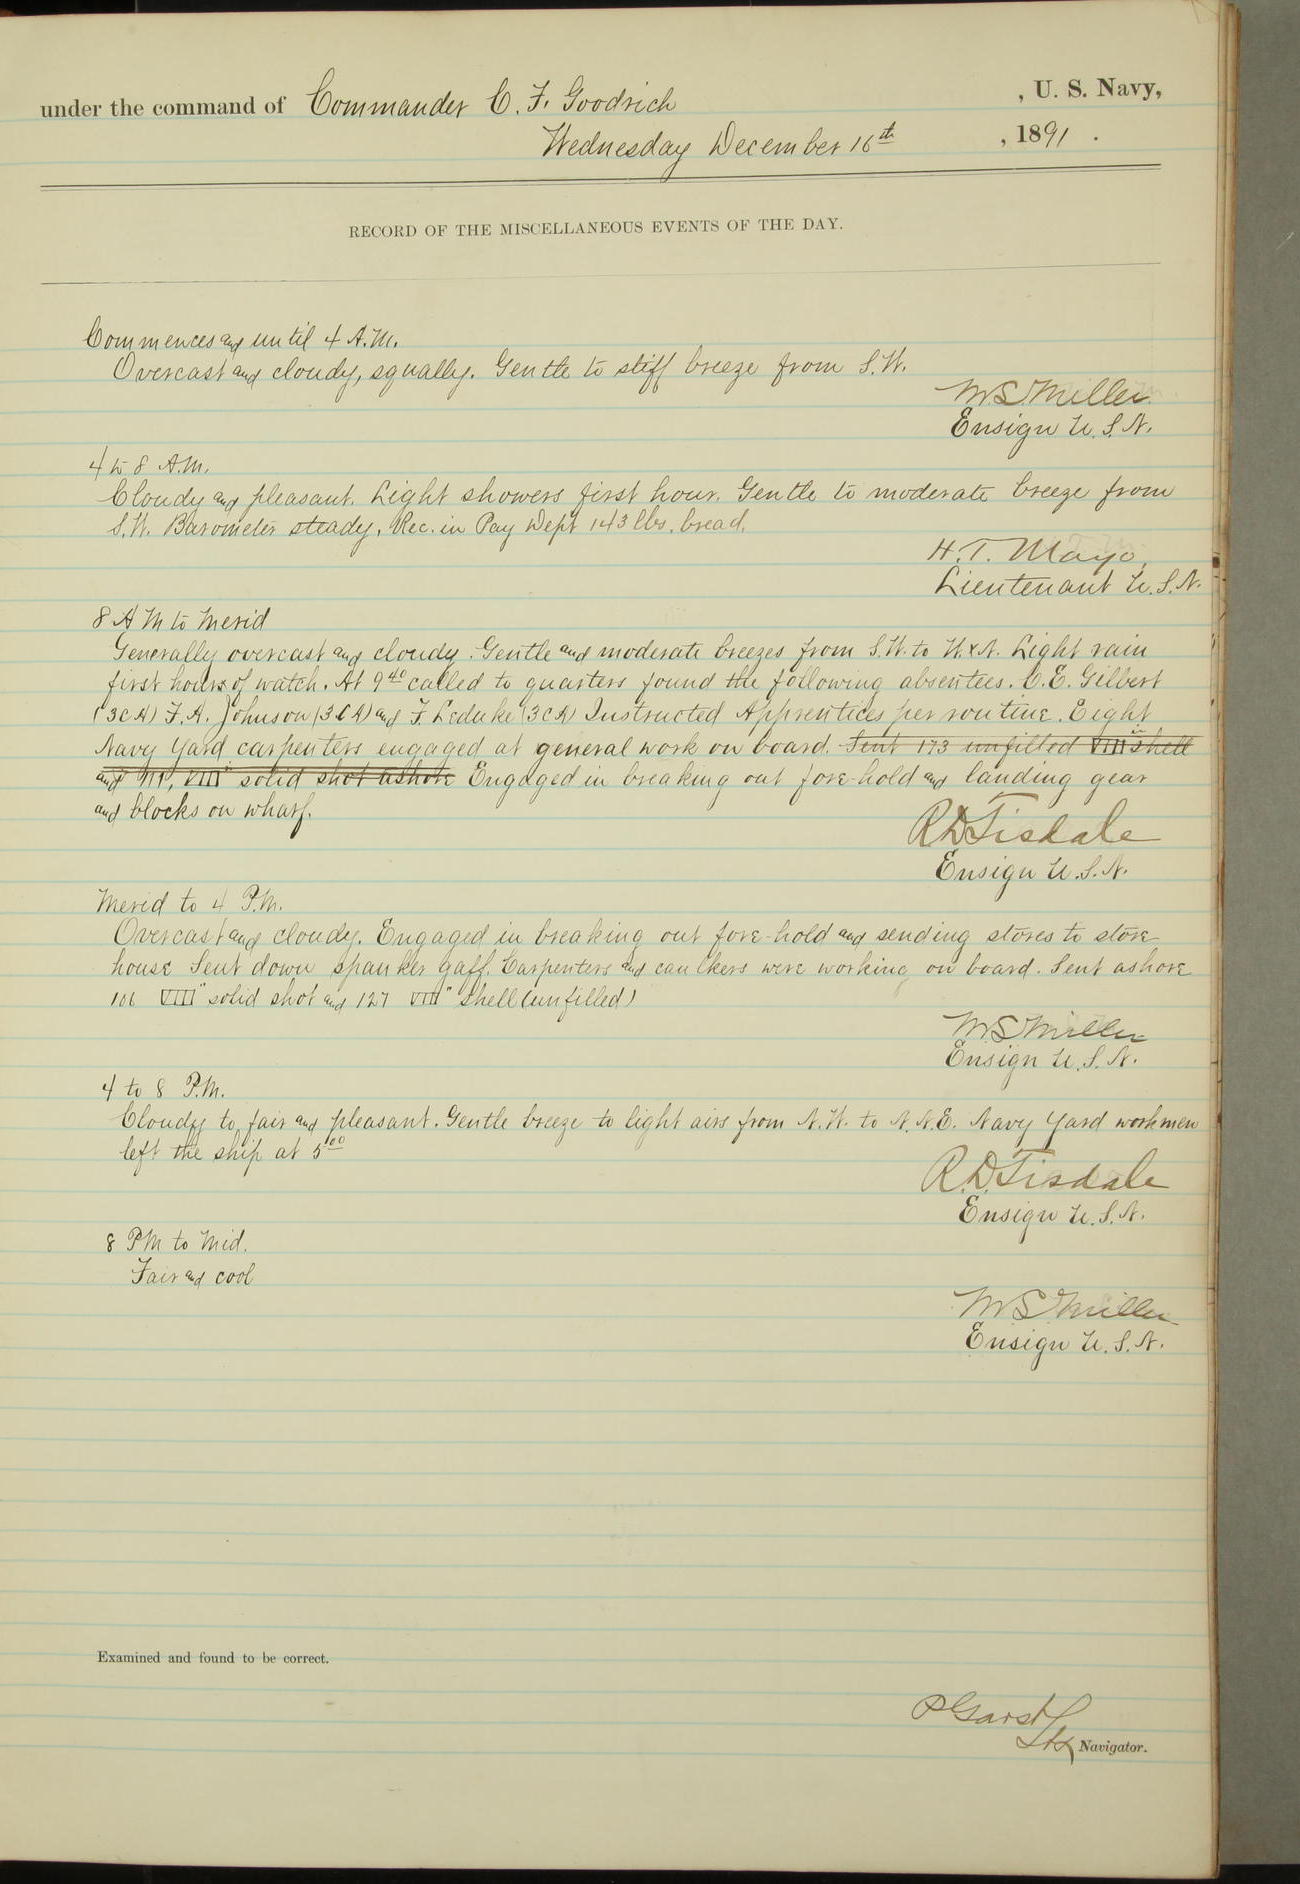 under the command of Commander C. F. Goodrich , U. S. Navy,
Wednesday December 16th , 1891 .
RECORD OF THE MISCELLANEOUS EVENTS OF THE DAY.
Commences and until 4 A.M.
Overcast and cloudy, squally. Gentle to stiff breeze from S.W.
W.S. Miller
Ensign U.S.N.
4 to 8 A.M.
Cloudy and pleasant. Light showers first hour. Gentle to moderate breeze from
S.W. Barometer steady. Rec. in Pay Dept 143 lbs. bread.
H.T. Mayo
Lieutenant U.S.N.
8 A M to Merid
Generally overcast and cloudy. Gentle and moderate breezes from S.W. to W.xN. Light rain
first hours of watch. At 9 40 called to quarters found the following absentees. C.E. Gilbert
(3CA) F.A. Johnson (3CA) and F. Leduke (3CA) Instructed Apprentices per routine. Eight
Navy Yard carpenters engaged at general work on board. Sent 173 unfilled VIII" shell
and VIII" solid shot ashore Engaged in breaking out fore-hold and landing gear
and blocks on wharf.
R D Tisdale
Ensign U.S.N.
Merid to 4 P.M.
Overcast and cloudy. Engaged in breaking out fore-hold and sending stores to store
house Sent down spanker gaff. Carpenters and caulkers were working on board. Sent ashore
106 VIII" solid shot and 127 VIII" shell (unfilled)
W.S. Miller
Ensign U.S.N.
4 to 8 P.M.
Cloudy to fair and pleasant. Gentle breeze to light airs from N.W. to N.N.E. Navy Yard workmen
left the ship at 5 00
R.D. Tisdale
Ensign U.S.N.
8 PM to Mid.
Fair and cool
W.S. Miller
Ensign U.S.N.
Examined and found to be correct.
P Garst
Lt Navigator.